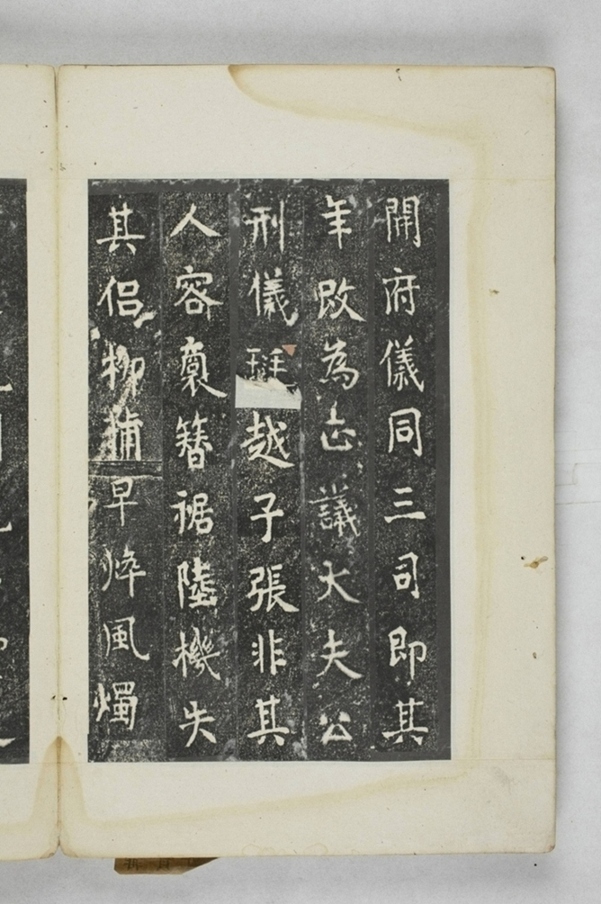 開府儀同三司即其
年改為正議大夫公
刑儀挻越子張非其
人容裒簮裾陸機失
其侣柳蒲早燁風燭